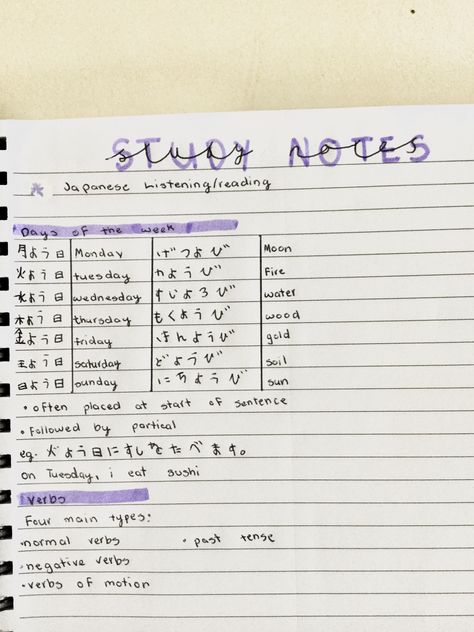 STUDY NOTES
study notes
Japanese Listening/reading
Days of the week
月よう日 Monday げつようび Moon
火よう日 tuesday かようび Fire
水よう日 wednesday すいようび water
木よう日 thursday もくようび wood
金よう日 friday きんようび gold
土よう日 saturday どようび soil
日よう日 sunday にちようび sun
• often placed at start of sentence
• Followed by partical
eg. 火よう日にすしをたべます。
on Tuesday, i eat sushi
Verbs
Four main types:
•normal verbs • past tense
•negative verbs
•verbs of motion